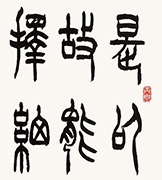 是以
故能
擇細